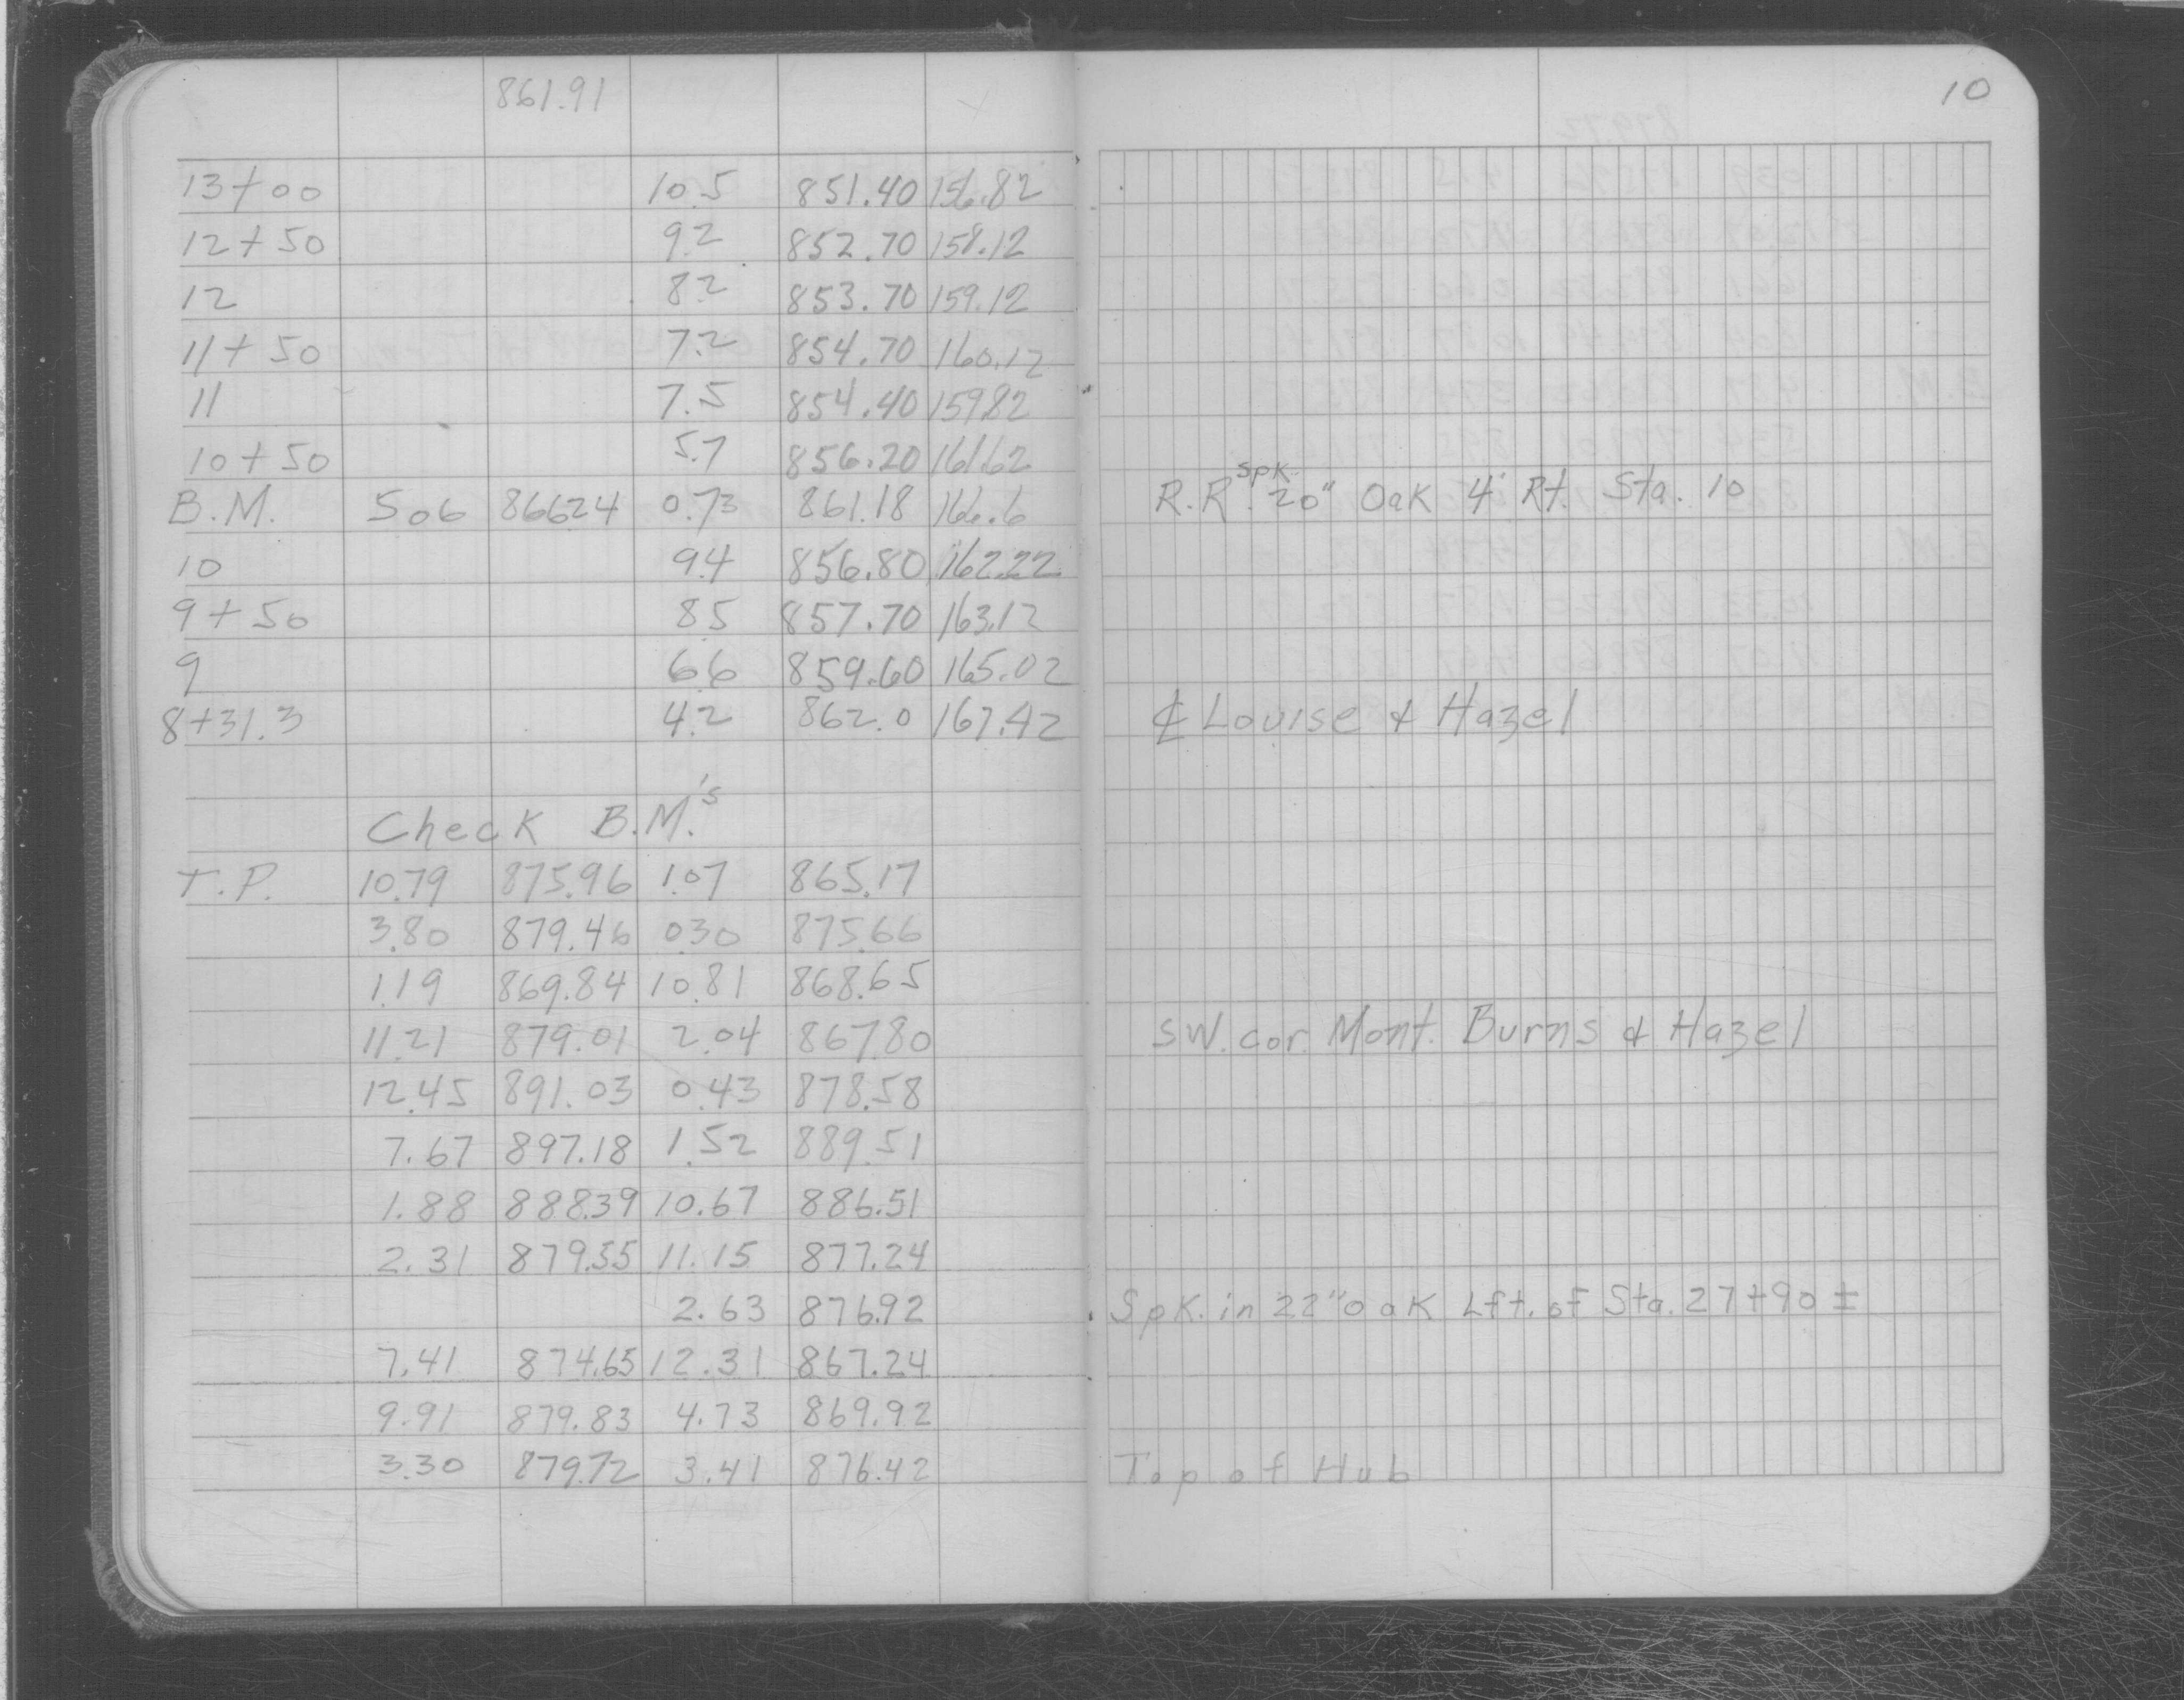 861.91
10
13+00 10.5 851.40 156.82
12+50 9.2 852.70 158.12
12 8.2 853.70 159.12
11+50 7.2 854.70 160.12
11 7.5 854.40 159.82
10+50 5.7 856.20 161.62
B.M. 506 86624 0.73 861.18 166.6 R.R. spk. 20" Oak 4' Rt. Sta. 10
10 9.4 856.80 162.22
9+50 8.5 857.70 163.12
9 6.6 859.60 165.02
8+31.3 4.2 862.0 167.42 ℄ Louise & Hazel
Check B.M.'s
T.P. 10.79 875.96 1.07 865.17
3.80 879.46 030 875.66
1.19 869.84 10.81 868.65
11.21 879.01 2.04 867.80 SW. cor. Mont. Burns & Hazel
12.45 891.03 0.43 878.58
7.67 897.18 1.52 889.51
1.88 888.39 10.67 886.51
2.31 879.55 11.15 877.24
2.63 876.92 Spk. in 22" oak Lft. of Sta. 27+90 ±
7.41 874.65 12.31 867.24
9.91 879.83 4.73 869.92
3.30 879.72 3.41 876.42 Top of Hub